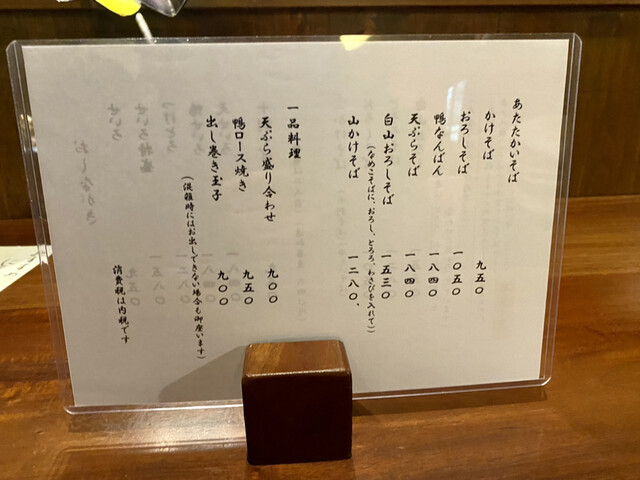 あたたかいそば
かけそば 九五〇
おろしそば 一〇五〇
鴨なんばん 一八四〇
天ぷらそば 一八四〇
白山おろしそば 一五三〇
(なめこそばに、おろし、とろろ、わさびを入れて)
山かけそば 一二八〇、
一品料理
天ぷら盛り合わせ 九〇〇
鴨ロース焼き 九五〇
出し巻き玉子 九〇〇
(混雑時にはお出しできない場合も御座います)
消費税は内税です
おしながき
せいろ